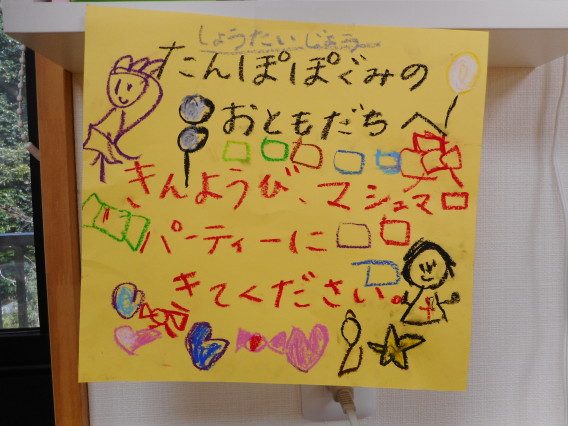 しょうたいじょう
たんぽぽぐみの
おともだちへ
きんようび、マシュマロ
パーティーに
きてください。